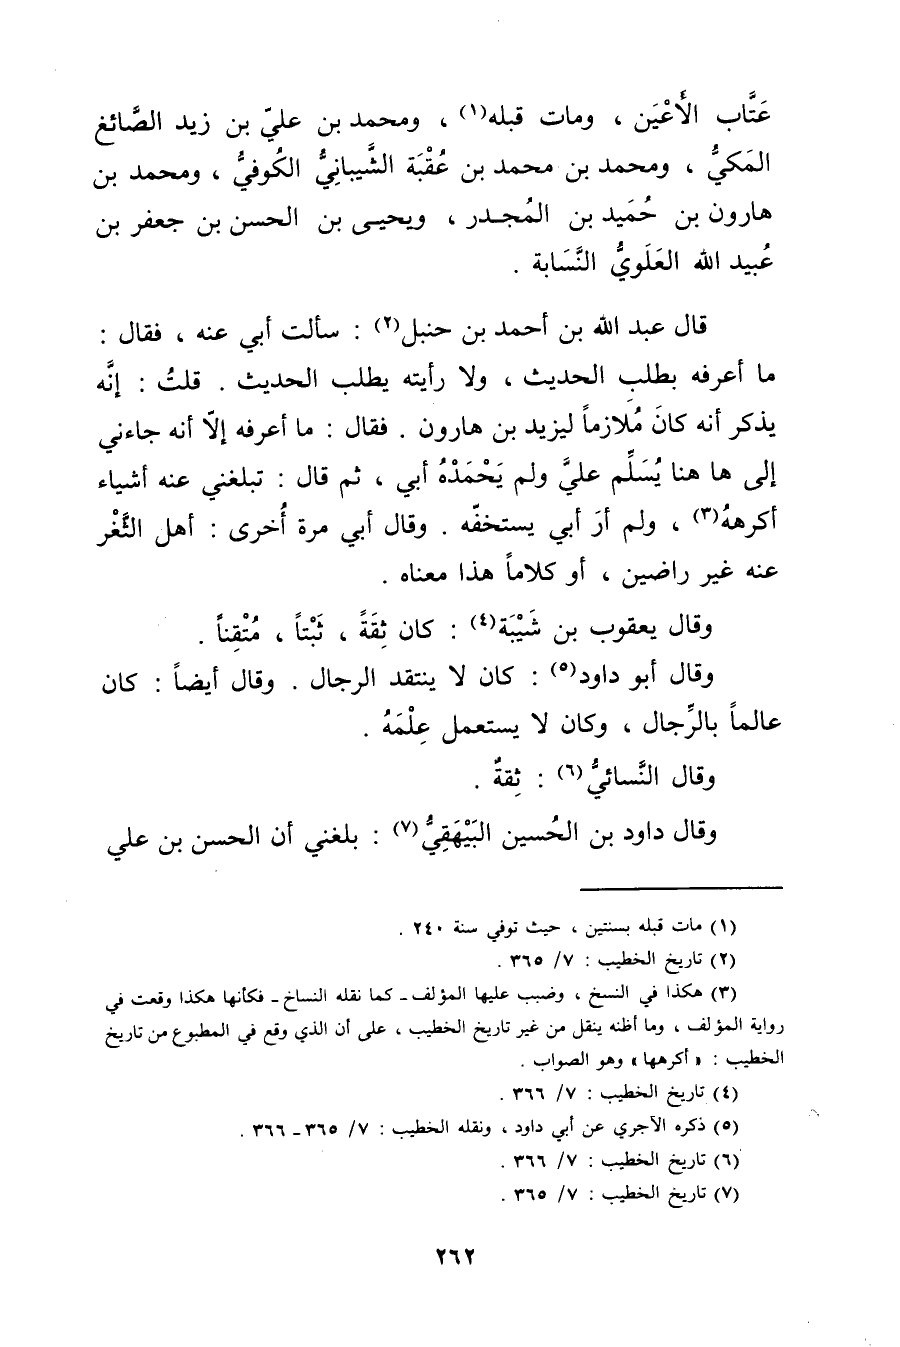 عَتَّاب الأَعْيَن ، ومات قبله(١) ، ومحمد بن عليّ بن زيد الصَّائغ
المَكيُّ ، ومحمد بن محمد بن عُقْبَة الشَّيبانِيُّ الكُوفيُّ ، ومحمد بن
هارون بن حُمَيد بن المُجـدر ، ويحيـى بن الحسن بن جعفر بن
عُبيد الله العَلَويُّ النَّسَابة .
قال عبد الله بن أحمد بن حنبل(٢) : سألت أبي عنه ، فقال :
ما أعرفه بطلب الحديث ، ولا رأيته يطلب الحديث . قلتُ : إنَّه
يذكر أنه كانَ مُلازماً ليزيد بن هارون . فقال : ما أعرفه إلاّ أنه جاءني
إلى ها هنا يُسَلِّم عليَّ ولم يَحْمَدْهُ أبي ، ثم قال : تبلغني عنه أشياء
أكرههُ(٣) ، ولم أرَ أبي يستخفّه . وقال أبي مرة أُخرى : أهل الثَّغْر
عنه غير راضين ، أو كلاماً هذا معناه .
وقال يعقوب بن شَيْبَة(٤) : كان ثِقَةً ، ثَبْتاً ، مُتْقِناً .
وقال أبو داود(٥) : كان لا ينتقد الرجال . وقال أيضاً : كان
عالماً بالرِّجال ، وكان لا يستعمل عِلْمَهُ .
وقال النَّسائيُّ(٦) : ثِقةٌ .
وقال داود بن الحُسين البَيْهَقِيُّ(٧) : بلغني أن الحسن بن علي
(١) مات قبله بسنتين ، حيث توفي سنة ٢٤٠ .
(٢) تاريخ الخطيب : ٧/ ٣٦٥ .
(٣) هكذا في النسخ ، وضبب عليها المؤلف ـ كما نقله النساخ ـ فكأنها هكذا وقعت في
رواية المؤلف ، وما أظنه ينقل من غير تاريخ الخطيب ، على أن الذي وقع في المطبوع من تاريخ
الخطيب : « أكرهها » وهو الصواب .
(٤) تاريخ الخطيب : ٧/ ٣٦٦ .
(٥) ذكره الآجري عن أبي داود ، ونقله الخطيب : ٧/ ٣٦٥ ـ ٣٦٦ .
(٦) تاريخ الخطيب : ٧/ ٣٦٦ .
(٧) تاريخ الخطيب : ٧/ ٣٦٥ .
٢٦٢